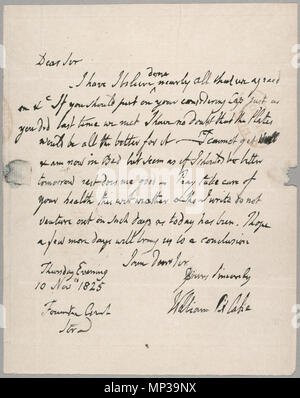 Dear Sir
done
I have I believe nearly all that we agreed
on & if you should put on your considering Cap just as
you did last time we met I have no doubt that the Plates
would be all the better for it I cannot get Well
& am now in Bed but seem as if I should be better
tomorrow rest does me good Pray take care of
your health this wet weather & tho I write do not
venture out on such days as today has been. I hope
a few more days will bring us to a conclusion
I am Dear Sir
Yours Sincerely
William Blake
Thursday Evening
10 Novr 1825
Fountain Court
Strand
alamy
Image ID: MP39NX
www.alamy.com